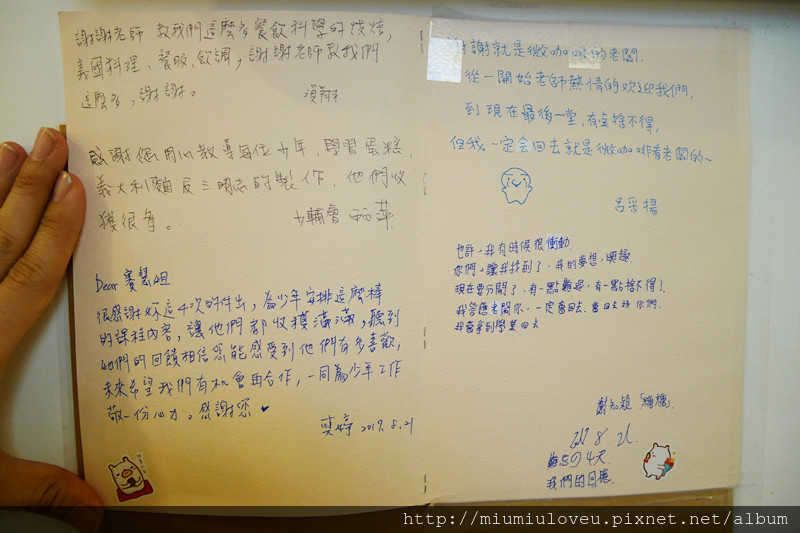 謝謝老師 教我們這麼多餐飲料學的烘焙,
美國料理、餐版、飲調,謝謝老師教我們
這麼多,謝謝。
感謝您用心教導每位少年,學習蛋糕,
義大利麵及三明志的製作,他們收
獲很多。
少輔會
Dear 賽慧姐
很感謝妳這4次的付出,為少年安排這麼棒
的課程內容,讓他們都收穫滿滿,聽到
他們的回饋相信您能感受到他們有多喜歡,
未來希望我們有机會再合作,一同為少年工作
敬一份心力。感謝您♥
2017.8.21
謝謝就是微咖啡的老闆.
從一開始老師熱情的欢迎我們,
到現在最後一堂,有點捨不得,
但我一定会回去就是微咖啡看老闆的~
呂采揚
也許,我有時候很衝動
你們,讓我找到了,我的夢想,興趣.
現在要分開了,有一點難過,有一點捨不得了.
我答應老闆你,一定會回去,會回去找你們.
我會拿到學業回去
「糖糖」
難忘の4天.
我們的回憶.
http://miumiuloveu.pixnet.net/album